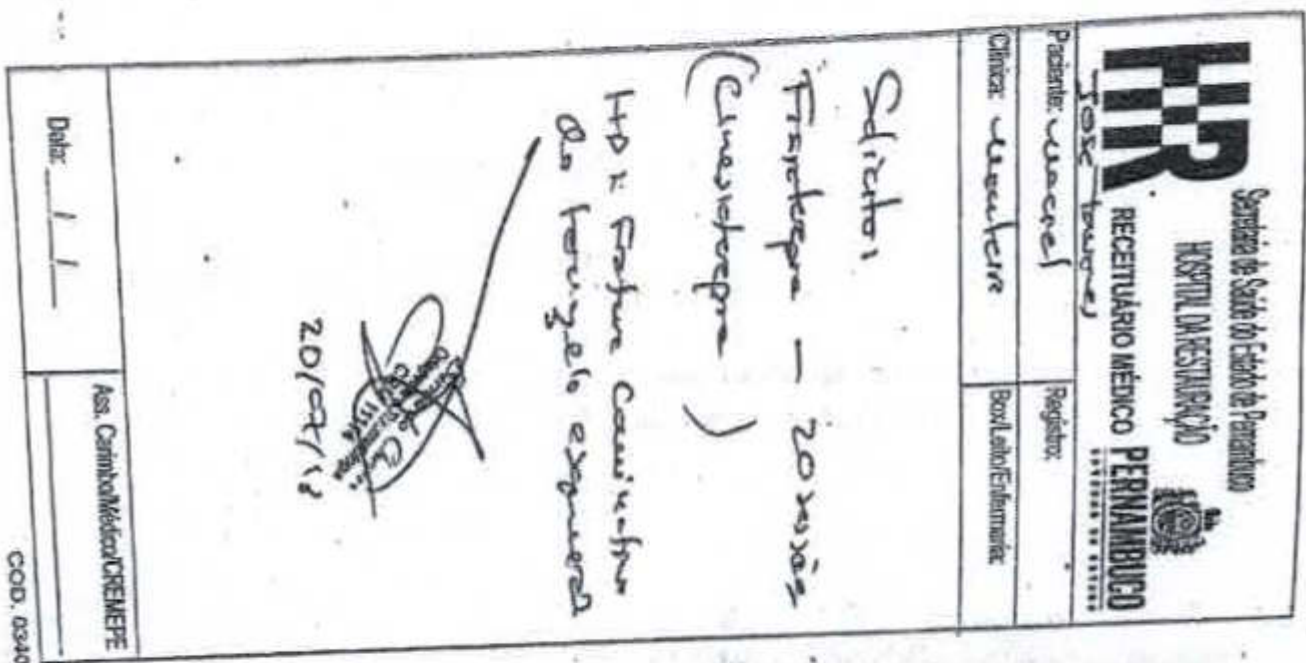 Secretaria de Saúde do Estado de Pernambuco
HR
HOSPITAL DA RESTAURAÇÃO
RECEITUÁRIO MÉDICO
PERNAMBUCO
GOVERNO DO ESTADO
José
Paciente:
Registro:
Clínica:
Box/Leito/Enfermaria:
Solicito:
Fisioterapia — 20 sessões
(Cinesioterapia)
HD: Fratura cominutiva
do tornozelo esquerdo
20/07/18
Data: / /
Ass. Carimbo/Médico/CREMEPE
COD. 0340